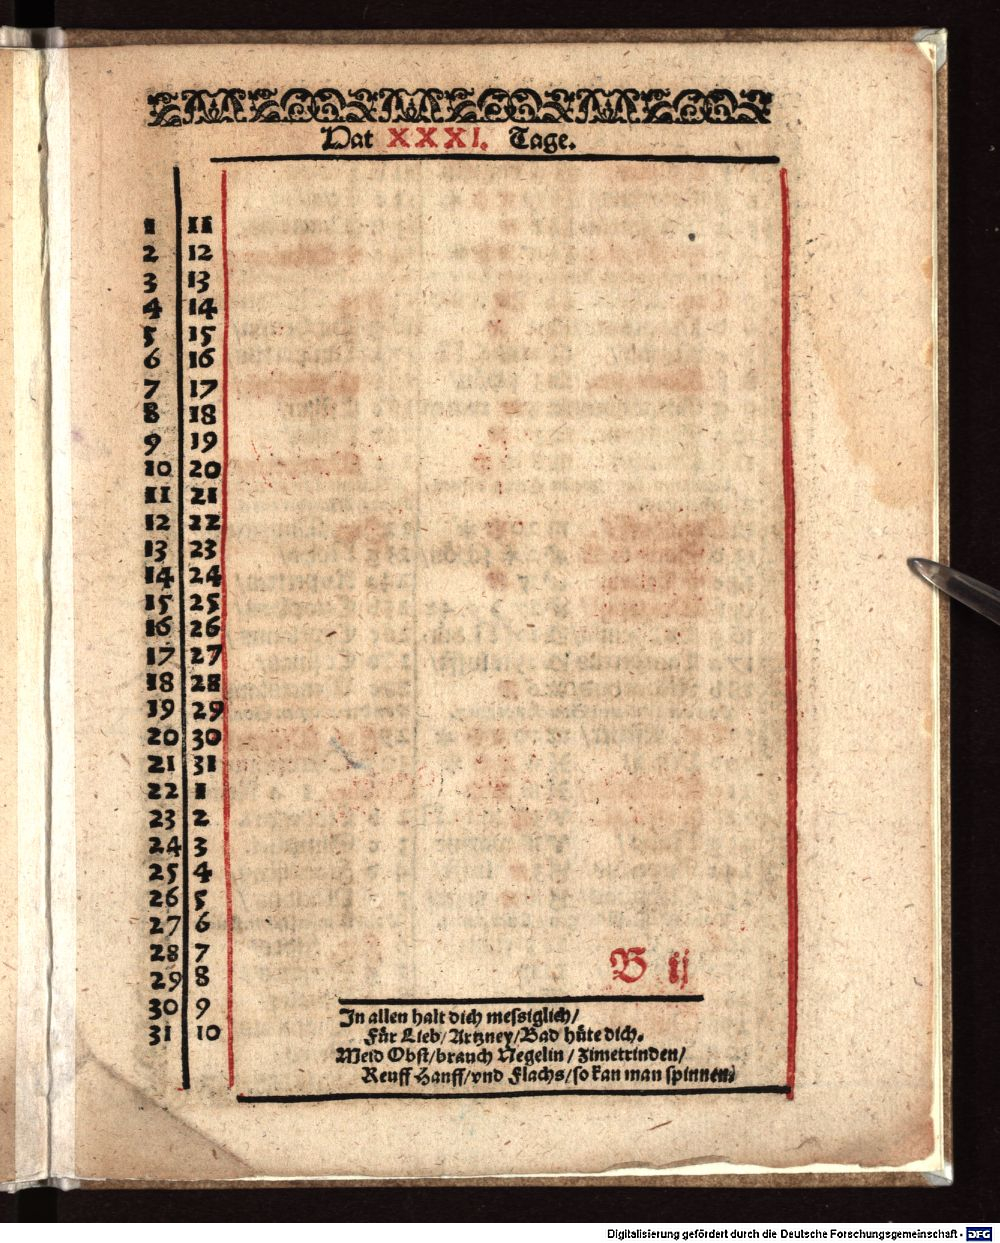 Hat XXXI. Tage.
1 11
2 12
3 13
4 14
5 15
6 16
7 17
8 18
9 19
10 20
11 21
12 22
13 23
14 24
15 25
16 26
17 27
18 28
19 29
20 30
21 31
22 1
23 2
24 3
25 4
26 5
27 6
28 7
29 8
30 9
31 10
B ij
In allen halt dich messiglich/
Fůr Lieb/Artzney/Bad hůte dich.
Meid Obst/brauch Negelin/Zimetrinden/
Reuff Hanff/vnd Flachs/so kan man spinnen.
Digitalisierung gefördert durch die Deutsche Forschungsgemeinschaft - DFG